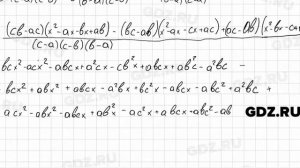 (cb-ac)(x²-ax-bx+ab) - (bc-ab)(x²-ax-cx+ac) + (ac-ab)(x²-bx-c
(c-a)(c-b)(b-a)
bcx² - acx² - abcx + a²cx - cb²x + abcx + ab²c - a²bc -
- bcx² + abx² + abcx - a²bx + bc²x - abcx - abc² + a²bc +
acx² - abx² - abcx + ab²x - ac²x + abcx + abc² - ab
GDZ.RU
GDZ.RU